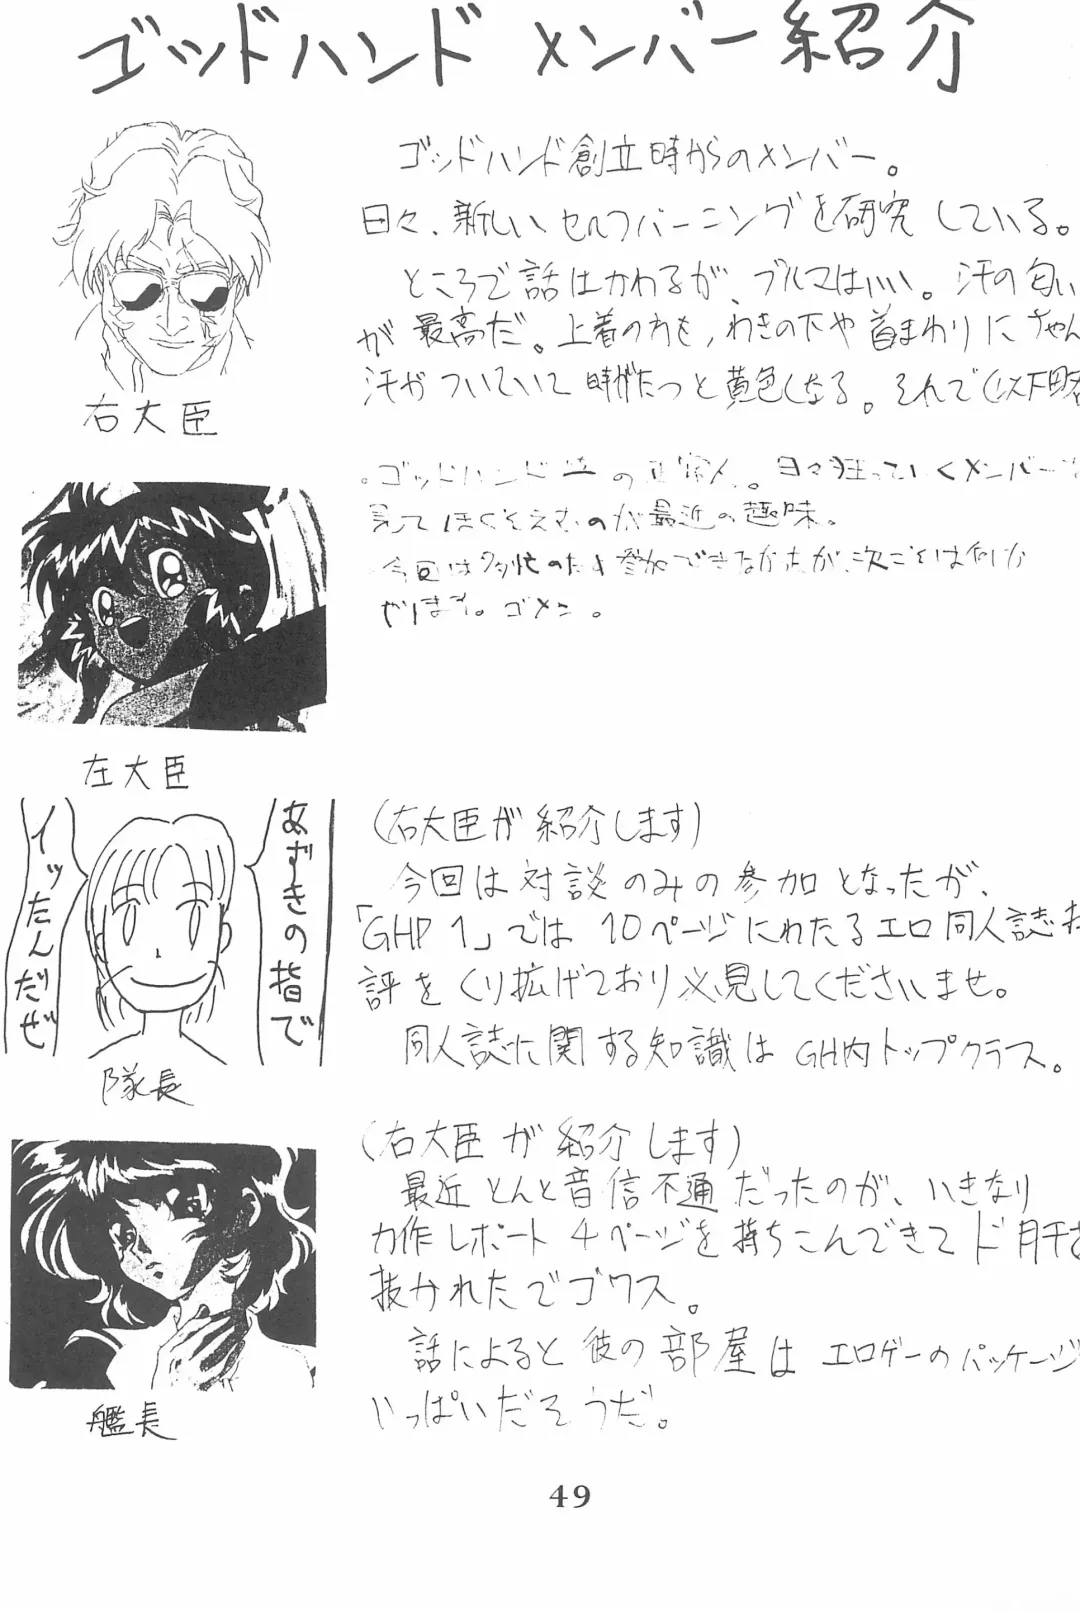 ゴッドハンド メンバー紹介
ゴッドハンド創立時からのメンバー。
日々、新しいセルフバーニングを研究している。
ところで話はかわるが、ブルマはいい。汗の匂い
が最高だ。上着の方も、わきの下や首まわりにちゃん
汗がついていて時がたつと黄色くなる。それで(以下略
右大臣
ゴッドハンド
の
人。日々狂っていくメンバー
見てほくそえむのが最近の趣味。
今回は多忙のため参加できなかったが、次こそは何か
やります。ゴメン。
左大臣
あずきの指で
イッたんだぜ
隊長
(右大臣が紹介します)
今回は対談のみの参加となったが、
「GHP 1」では10ページにわたるエロ同人誌
評をくり拡げており必見してくださいませ。
同人誌に関する知識はGH内トップクラス。
(右大臣が紹介します)
最近とんと音信不通だったのが、いきなり
力作レポート4ページを持ちこんできてド肝
抜かれたでゴワス。
話によると彼の部屋はエロゲーのパッケージ
いっぱいだそうだ。
艦長
49